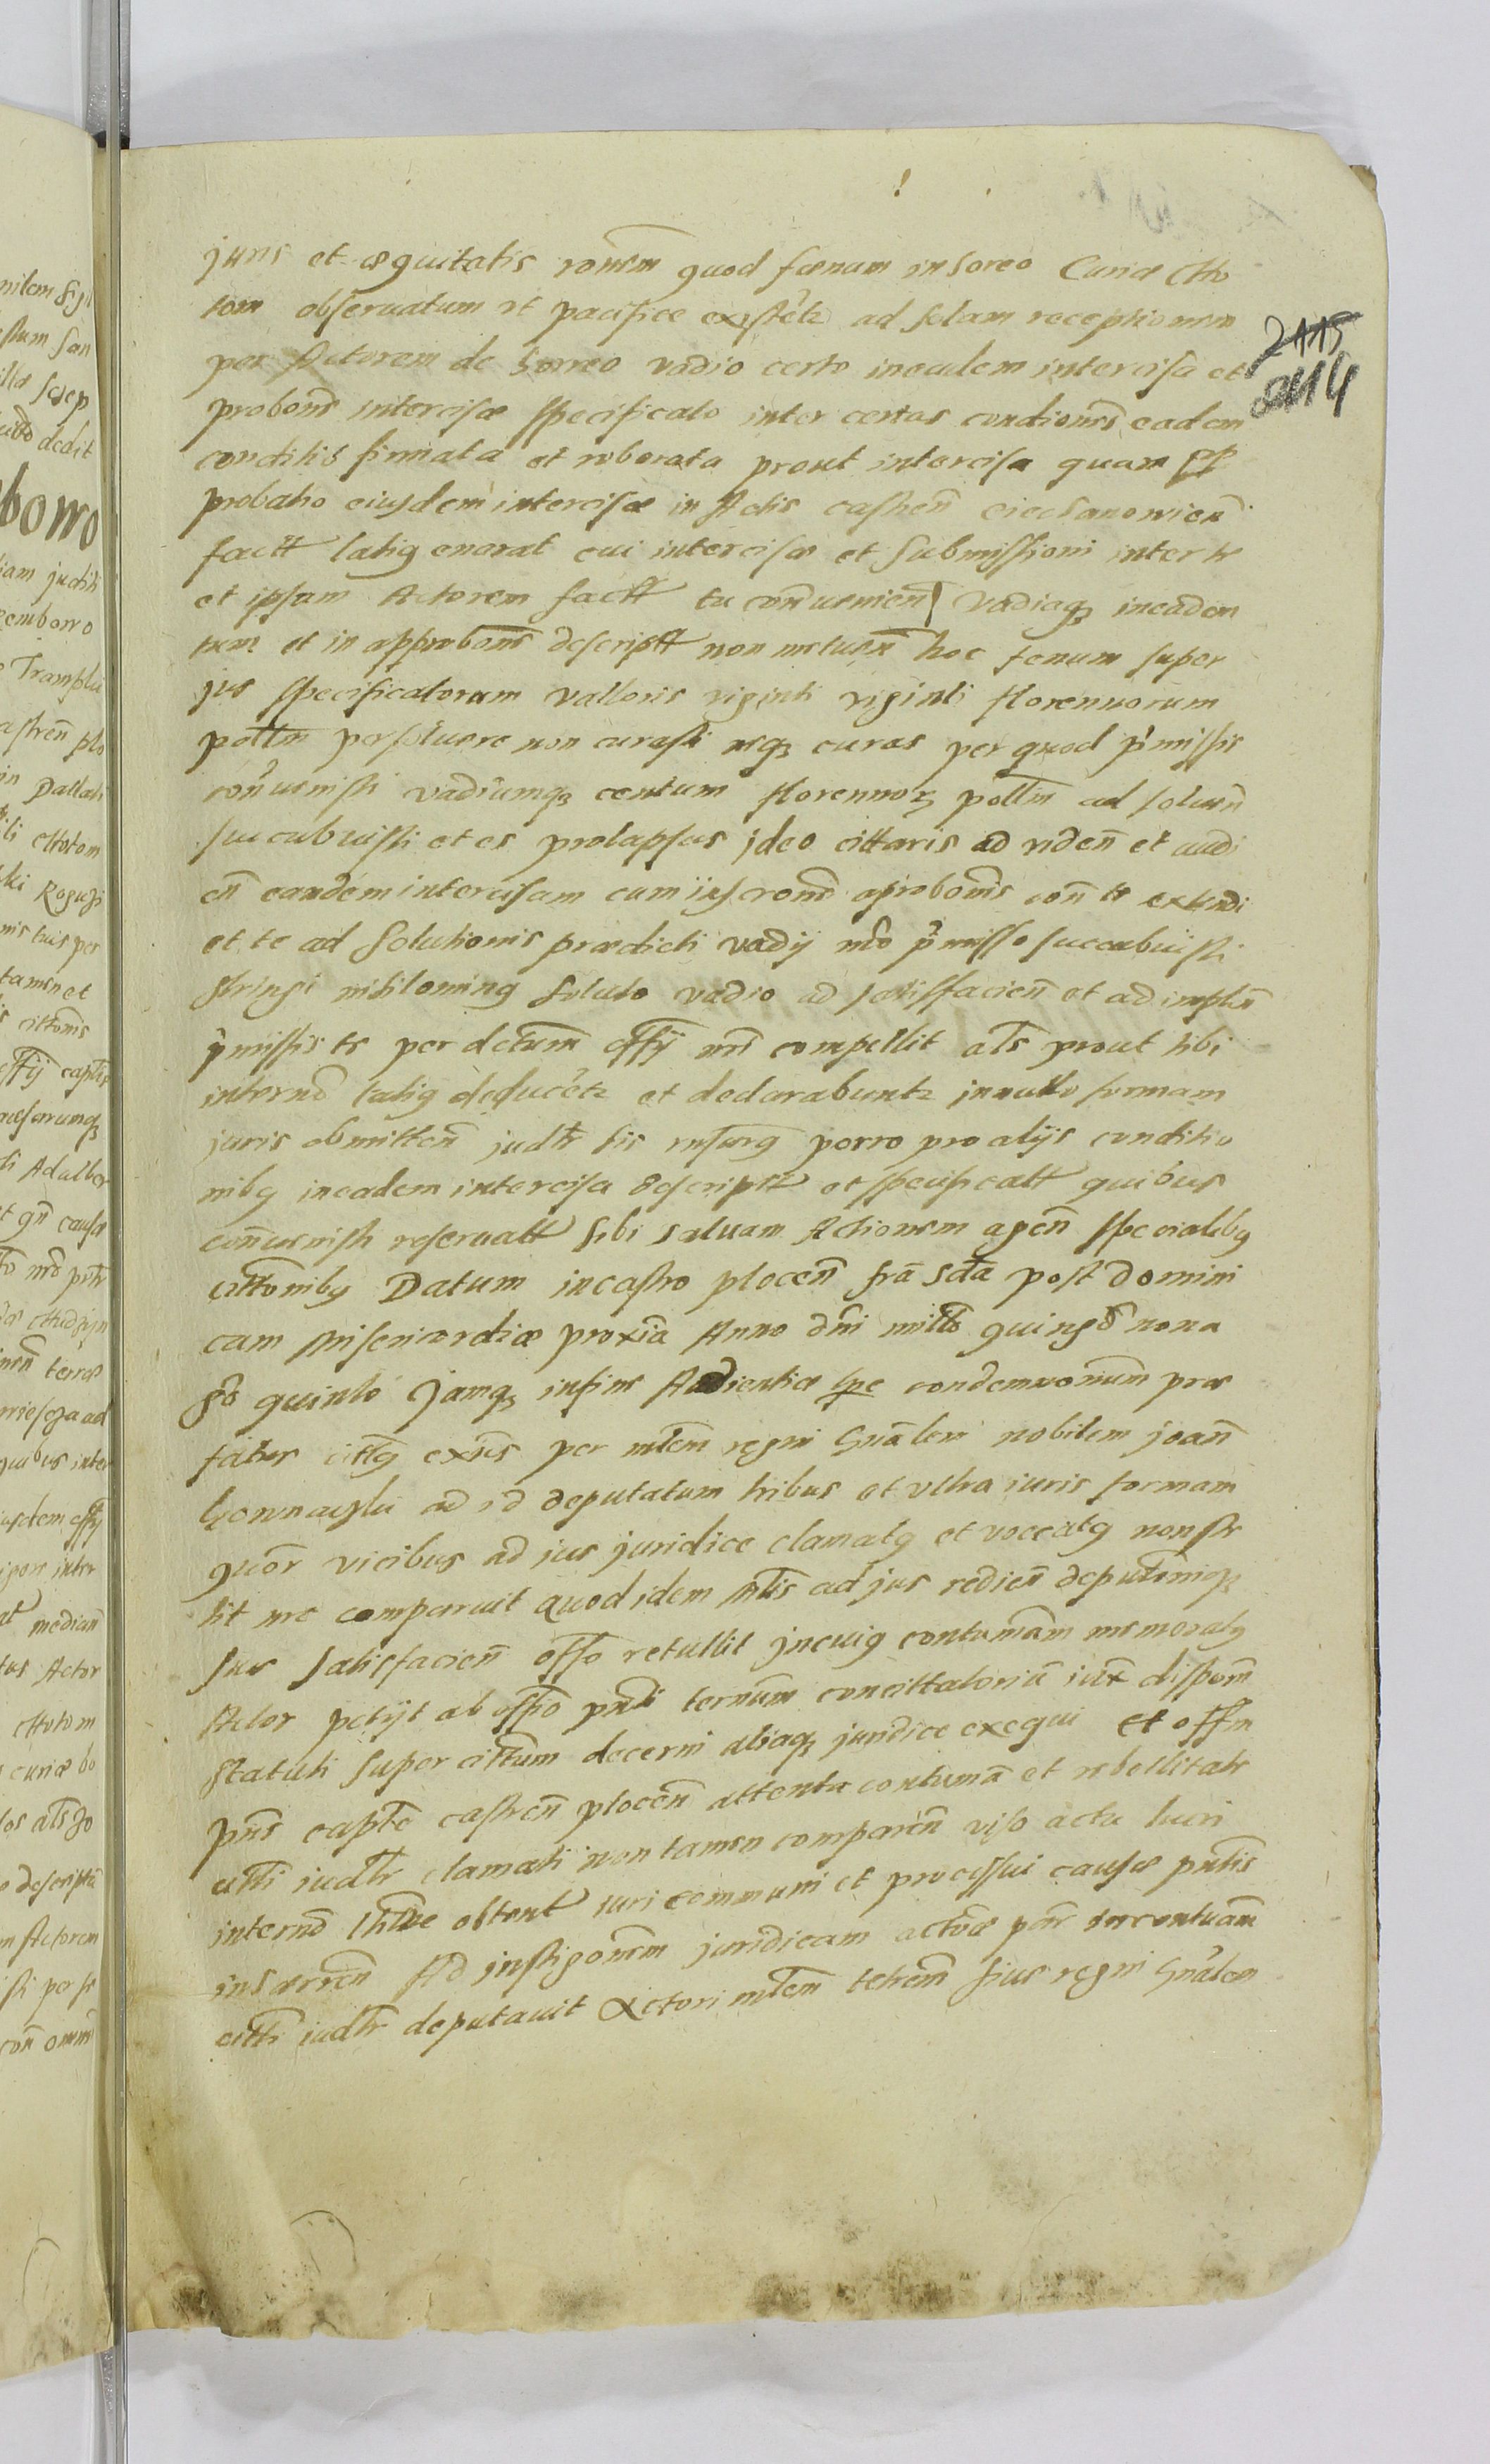 juris et æquitatis ronem quod fœnum in horeo Curiæ Mo
tom observatum et pacifice existetz ad solam receptionem
per Actorem de horreo vadio certo in eadem intercisa et
probone intercisæ specificato inter certas condiones eadem
conditis firmata et roborata prout intercisa quam
probatio eiusdem intercisæ in Actis castren ciechanowien
factt latig enarat cui intercisæ et submissioni inter te
et ipsum Actorem factt tu convenien vadiaq in eadem
et in approbone descriptt non metuen hoc fenum super
jus specificatorum valloris viginti viginti florennorum
pollm persoluere non curasti neq curas per quod pmissis
convenisti vadiumq centum florennor pollm ad soluen
succubuisti et es prolapsus jdeo cittaris ad viden et audi
en eandem intercisam cum aprobonis con te extendi
et te ad solutionis prædicti vadij mo pmisso succubuisti
stringi nihiloming soluto vadio ad satisfacien et ad implen
pmissis te per detum offij nri compellit als prout tibi
intermo latig deducetz et declarabuntz in nullo formam
juris obmitten judtr sis porro pro alijs conditio
nibg in eadem intercisa descriptt et specificatt quibus
convenisti reservatt sibi salvam Actionem agen specialibg
cittonibg Datum in castro plocen fra scda post domini
cam Misericordiæ proxia Anno dni millo quingo nona
go quinto Jamq in fine Audientiæ condemnonum præ
fatus cittg exns per mlem regni gnalem nobilem joan
ad id deputatum tribus et ultra iuris formam
quor vicibus ad jus juridice clamatg et vocatg non ste
tit nec comparuit quod idem mlis ad jus redien deputoniq
suæ satisfacien offo retullit jn cuig contumam memoratg
Actor petijt ab offo pnti ternum concittatorium iux dispom
statuti super cittum decerni aliaq juridice exequi et offm
pns capte castren plocen attenta contuma et rebellitate
citti iudtr clamati non tamen comparen viso actu luci
intermo obtent iuri communi et processui causæ pntis
insæren Ad instigonem juridicam actoræ par in contuam
citti iudtr deputavit Actori mlem telem sius regni gnalem
2115
2114